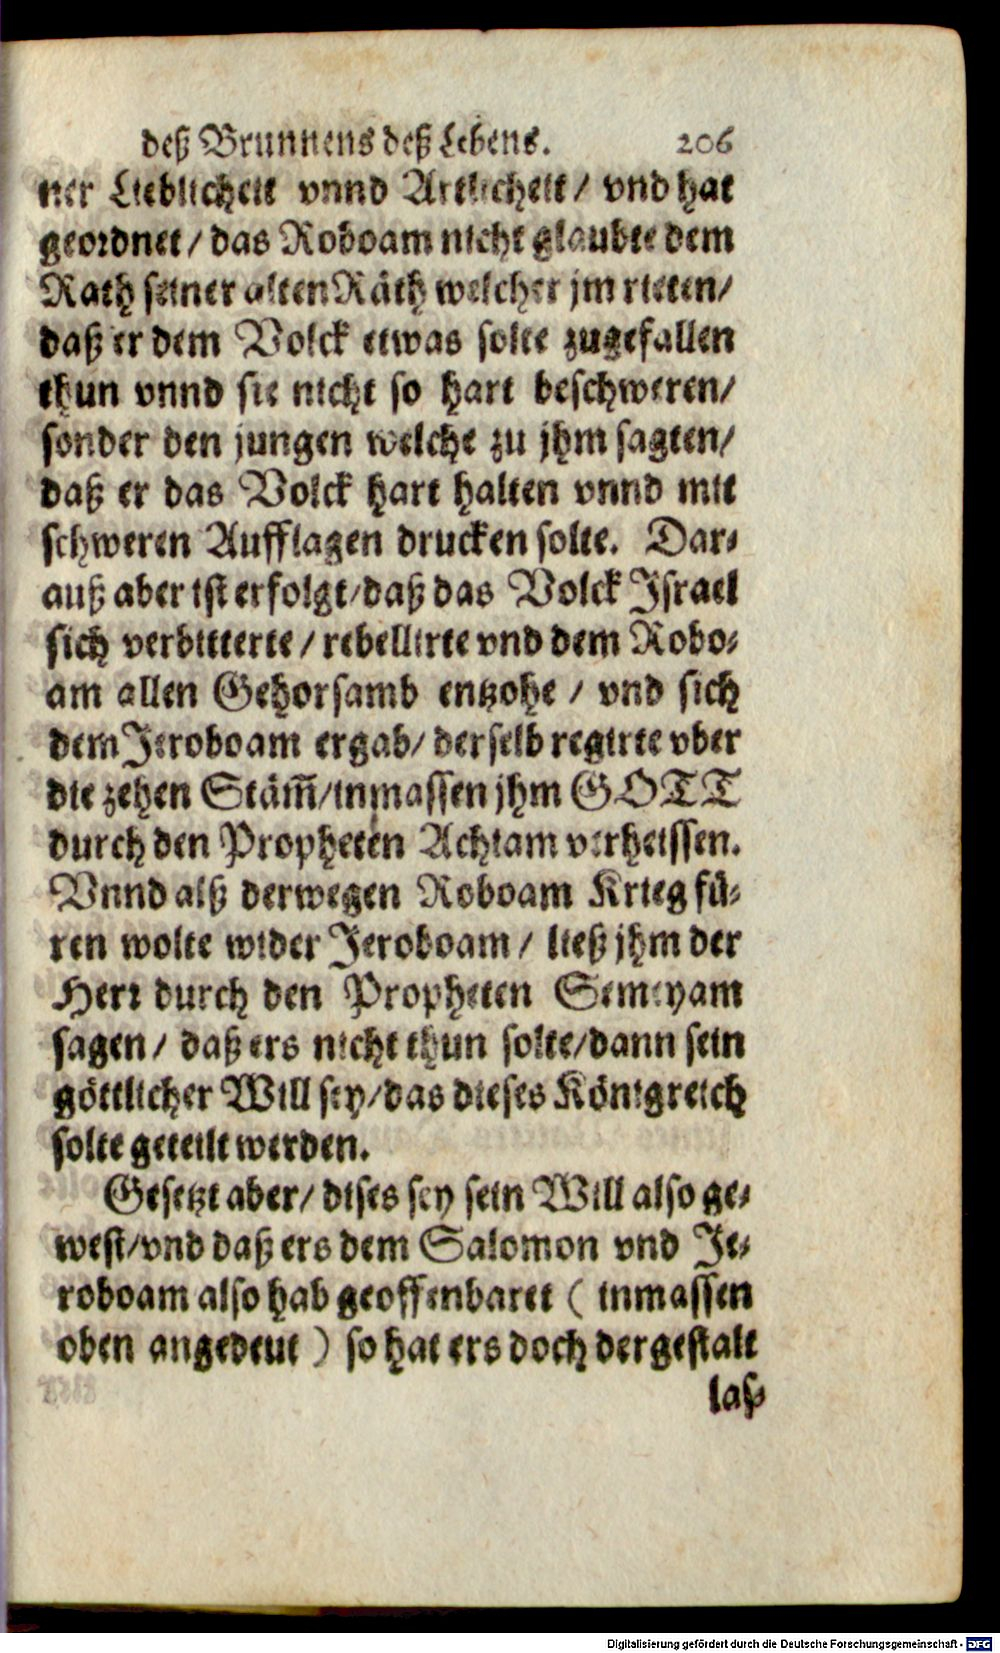 deß Brunnens deß Lebens. 206
ner Lieblicheit vnnd Artlicheit / vnd hat
geordnet / das Roboam nicht glaubte dem
Rath seiner alten Räth welcher jm rieten /
daß er dem Volck etwas solte zugefallen
thun vnnd sie nicht so hart beschweren /
sonder den jungen welche zu jhm sagten /
daß er das Volck hart halten vnnd mit
schweren Aufflagen drucken solte. Dar-
auß aber ist erfolgt / daß das Volck Israel
sich verbitterte / rebellirte vnd dem Robo-
am allen Gehorsamb entzohe / vnd sich
dem Jeroboam ergab / derselb regirte vber
die zehen Stäm̄ / inmassen jhm GOTT
durch den Propheten Achiam verheissen.
Vnnd alß derwegen Roboam Krieg fü-
ren wolte wider Jeroboam / ließ jhm der
Herr durch den Propheten Semeyam
sagen / daß ers nicht thun solte / dann sein
göttlicher Will sey / das dieses Königreich
solte geteilt werden.
Gesetzt aber / dises sey sein Will also ge-
west / vnd daß ers dem Salomon vnd Je-
roboam also hab geoffenbaret ( inmassen
oben angedeut ) so hat ers doch dergestalt
las-
Digitalisierung gefördert durch die Deutsche Forschungsgemeinschaft - DFG